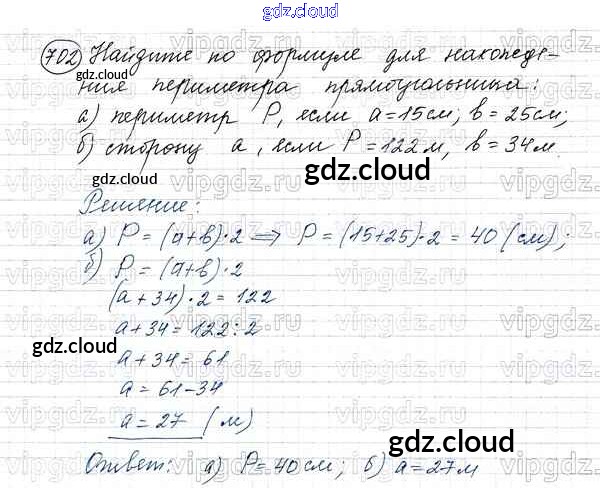 gdz.cloud
gdz.cloud
702 Найдите по формуле для нахожде-
gdz.cloud
ния периметра прямоугольника:
а) периметр P, если a=15см; b=25см;
б) сторону a, если P=122м, b=34м.
gdz.cloud
Решение:
а) P=(a+b)·2 ⟹ P=(15+25)·2=40(см);
б) P=(a+b)·2
(a+34)·2=122
a+34=122:2
gdz.cloud
a+34=61
a=61-34
a=27 (м)
gdz.cloud
Ответ: а) P=40см; б) a=27м
vipgdz.ru